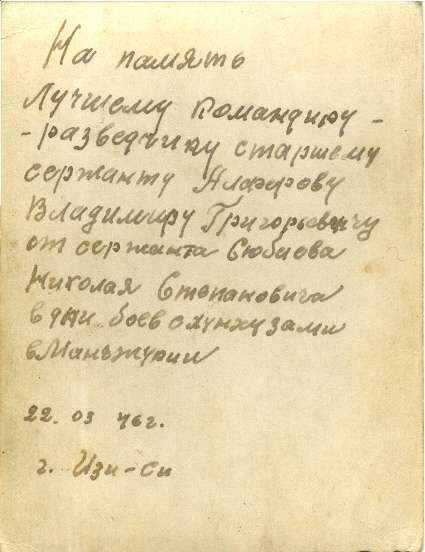 На память
Лучшему Командиру -
- разведчику старшему
сержанту Алферову
Владимиру Григорьевичу
от сержанта Сюбаева
Николая Степановича
в дни боев с хунхузами
в Маньжурии
22. 03 46 г.
г. Изи-Си